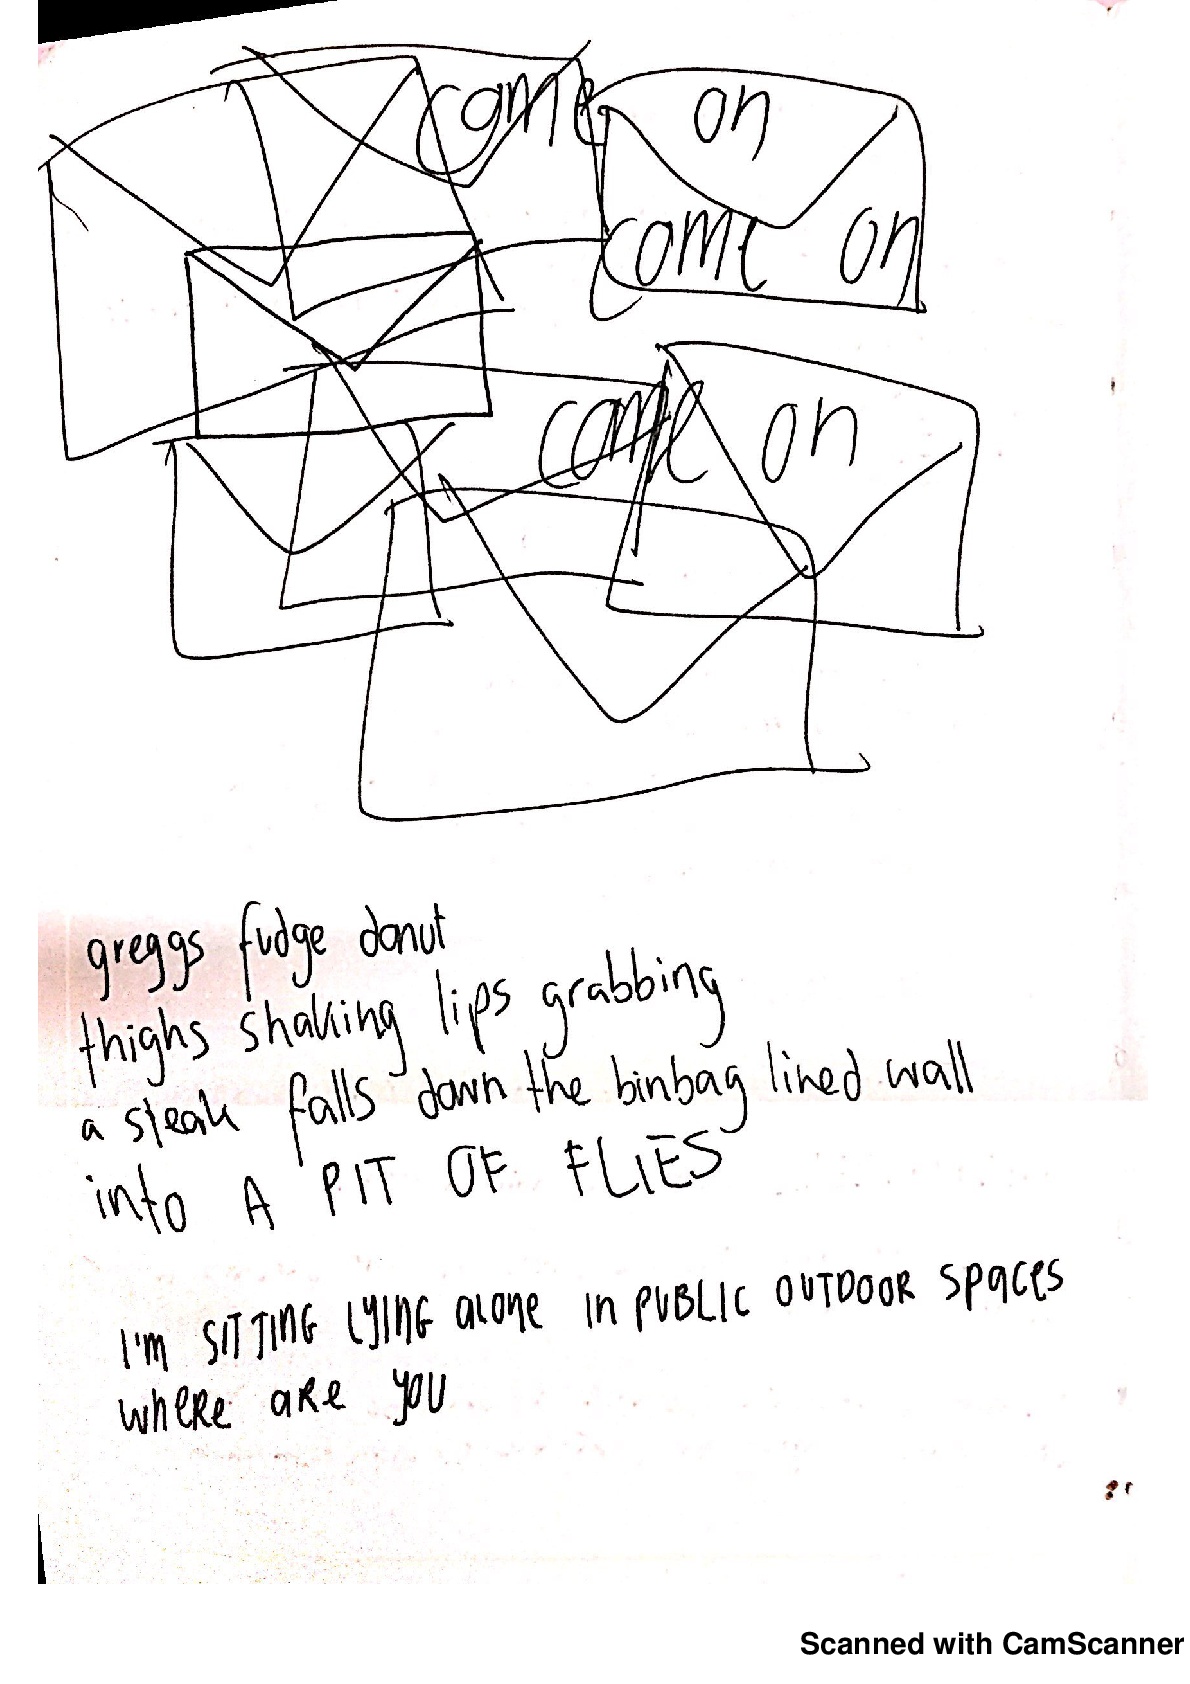 come on
come on
come on
greggs fudge donut
thighs shaking lips grabbing
a steak falls down the binbag lined wall
into A PIT OF FLIES
I'm SITTING LYING alone in PUBLIC OUTDOOR SPaces
where are you
Scanned with CamScanner